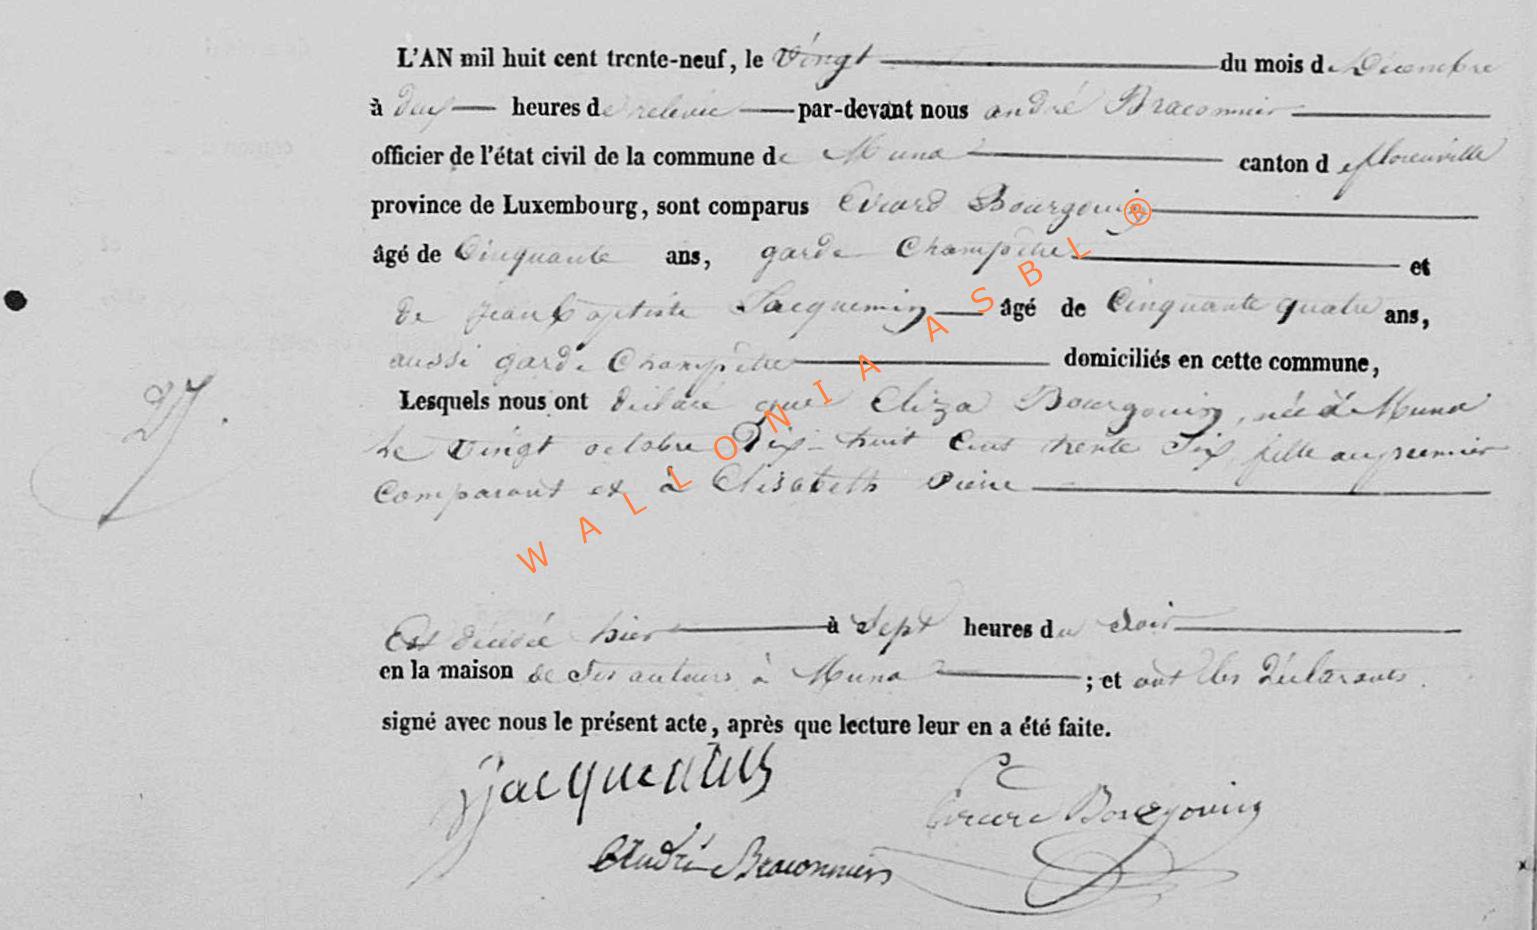 L'AN mil huit cent trente-neuf, le Vingt du mois de Décembre
à deux heures de relevée par-devant nous andré Braconnier
officier de l'état civil de la commune de Muno canton d florenville
province de Luxembourg, sont comparus Evrard Bourgouin
âgé de Cinquante ans, garde Champêtre et
de jean baptiste Jacquemin âgé de Cinquante quatre ans,
aussi garde Champêtre domiciliés en cette commune,
Lesquels nous ont déclaré que Eliza Bourgouin, née à Muno
le vingt octobre Dix-huit Cent trente Six, fille au premier
Comparant et à Elisabeth Pierre
Est décédée hier à Sept heures du Soir
en la maison de Ses auteurs à Muno ; et ont les Déclarants.
signé avec nous le présent acte, après que lecture leur en a été faite.
Jacquemin
Bourgouin
André Braconnier
WALLONIA ASBL ®